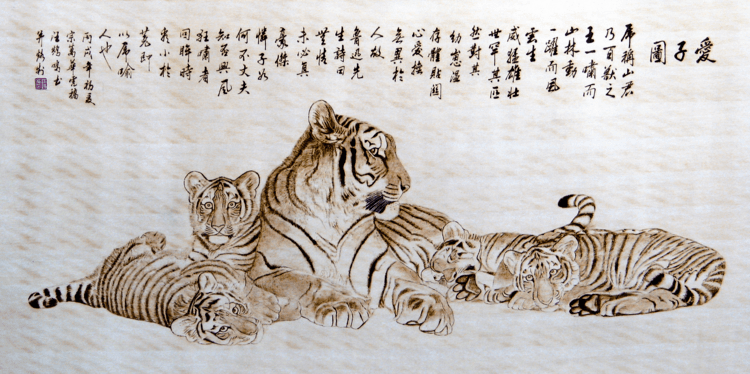 愛子圖
虎稱山君
乃百獸之
王一嘯而
山林動
一躍而風
雲生
威猛雄壯
世罕其匹
然對其
幼崽溫
存體貼關
心愛撫
無異於
人故
魯迅先
生詩曰
無情
未必真
豪傑
憐子如
何不丈夫
知否興風
狂嘯者
回眸時
看小於
菟即
以虎喻
人也
丙戌年初夏